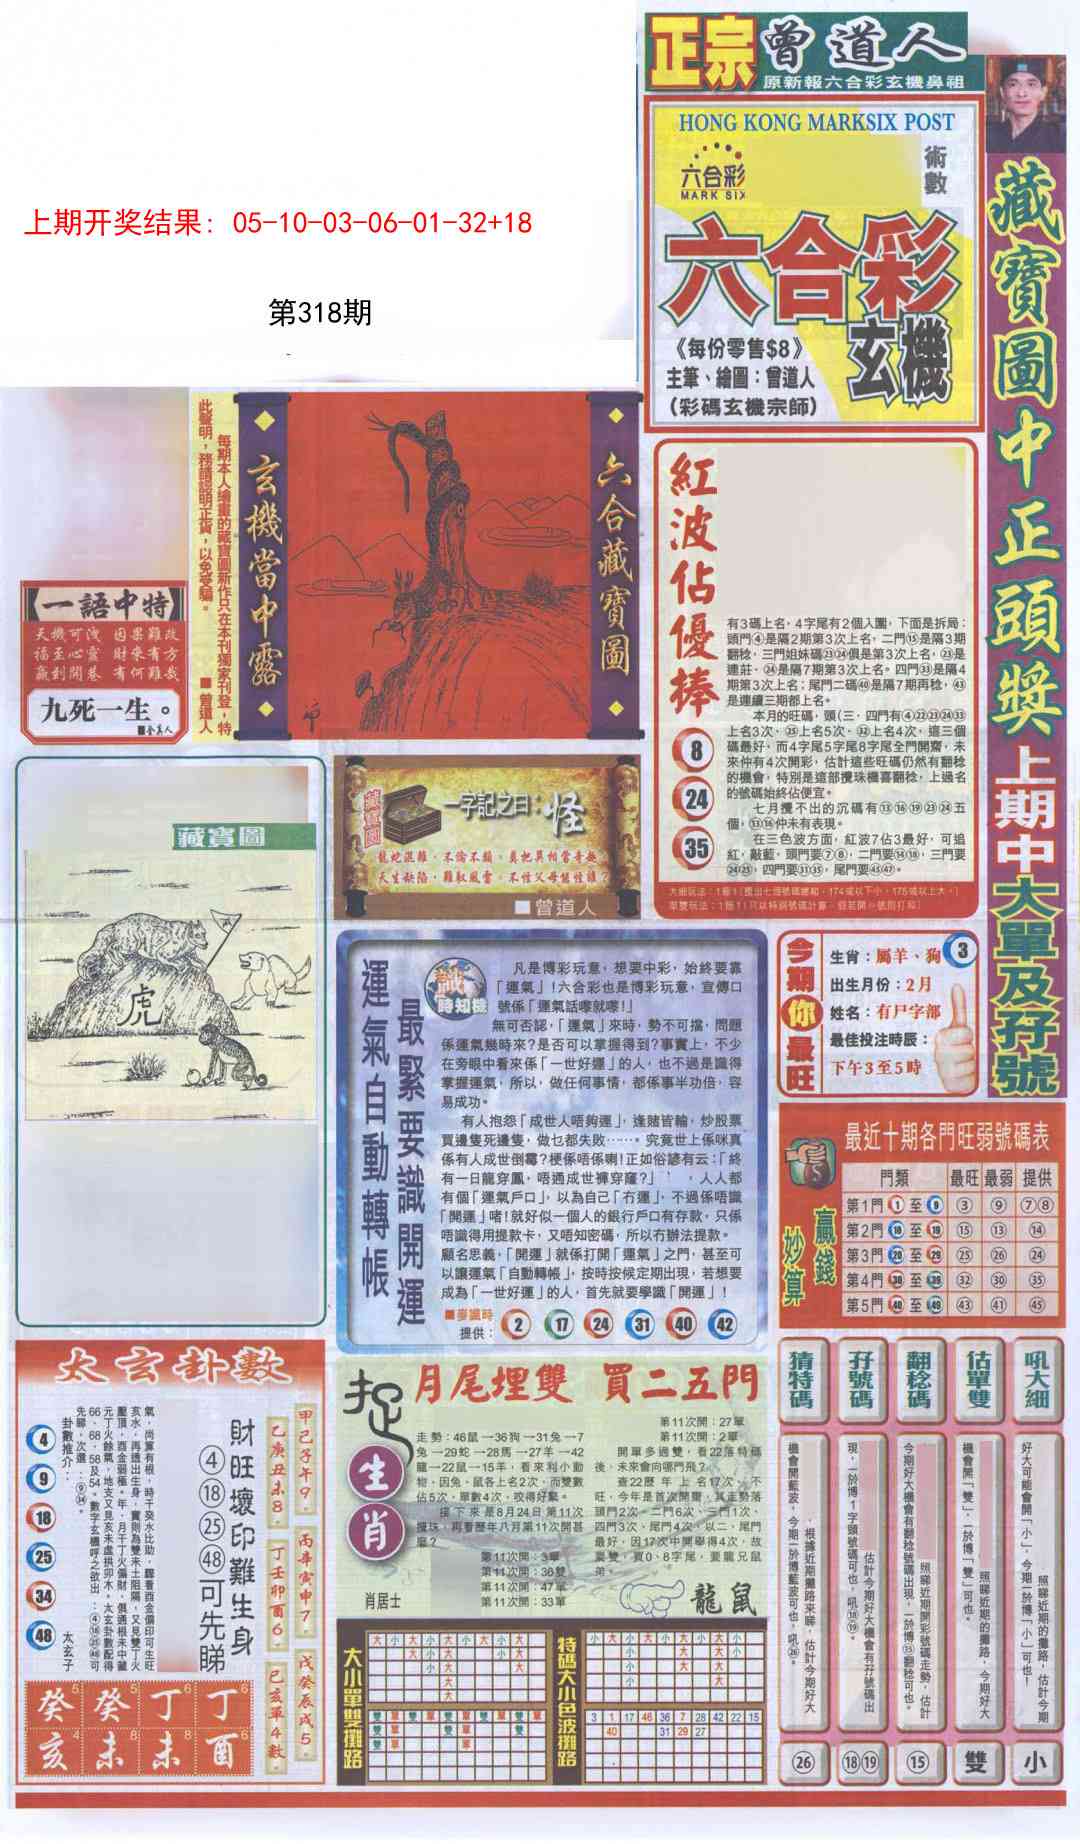 正宗曾道人
原新報六合彩玄機鼻祖
HONG KONG MARKSIX POST
六合彩
MARK SIX
術數
六合彩
玄機
《每份零售$8》
主筆、繪圖：曾道人
（彩碼玄機宗師）
藏寶圖中正頭獎
上期中大單及孖號
上期开奖结果：05-10-03-06-01-32+18
第318期
此聲明，務請認明正貨，以免受騙。
每期本人繪畫的藏寶圖新作只在本刊獨家刊登，特
■曾道人
玄機當中露
六合藏寶圖
一語中特
天機可洩 因果難改
福至心靈 財來有方
贏到開巷 有何難哉
九死一生。
藏寶圖
虎
藏寶圖
一字記之曰：怪
龍蛇混雜，不倫不類，莫把異相當奇趣
天生缺陷，難馭風雷，不怪父母能怪誰？
■曾道人
紅波佔優捧
8
24
35
有3碼上名，4字尾有2個入圍，下面是拆局：
頭門④是隔2期第3次上名，二門⑮是隔3期
翻稔，三門姐妹碼㉓㉔俱是第3次上名，㉓是
連莊，㉔是隔7期第3次上名。四門㉝是隔4
期第3次上名；尾門二碼㊵是隔7期再稔，㊸
是連續三期都上名。
本月的旺碼，頭（三．四門有④㉒㉓㉔㉝
上名3次，㉕上名5次，㉜上名4次，這三個
碼最好，而4字尾5字尾8字尾全門開齋，未
來仲有4次開彩，估計這些旺碼仍然有翻稔
的機會，特別是這部攪珠機喜翻稔，上過名
的號碼始終佔便宜。
七月攪不出的沉碼有⑬⑯⑲㉓㉔五
個，⑬⑯仲未有表現。
在三色波方面，紅波7佔3最好，可追
紅，敲藍，頭門要⑦⑧，二門要⑭⑱，三門要
㉔㉕，四門要㉛㉟，尾門要㊺㊼。
運氣自動轉帳
最緊要識開運
識時知機
凡是博彩玩意，想要中彩，始終要靠
「運氣」！六合彩也是博彩玩意，宣傳口
號係「運氣話嚟就嚟！」
無可否認，「運氣」來時，勢不可擋，問題
係運氣幾時來？是否可以掌握得到？事實上，不少
在旁眼中看來係「一世好運」的人，也不過是識得
掌握運氣，所以，做任何事情，都係事半功倍，容
易成功。
有人抱怨「成世人唔夠運」，逢賭皆輸，炒股票
買邊隻死邊隻，做乜都失敗……。究竟世上係咪真
係有人成世倒霉？梗係唔係喇！正如俗諺有云：「終
有一日龍穿鳳，唔通成世褲穿窿？」，人人都
有個「運氣戶口」，以為自己「冇運」，不過係唔識
「開運」啫！就好似一個人的銀行戶口有存款，只係
唔識得用提款卡，又唔知密碼，所以冇辦法提款。
顧名思義，「開運」就係打開「運氣」之門，甚至可
以讓運氣「自動轉帳」，按時按候定期出現，若想要
成為「一世好運」的人，首先就要學識「開運」！
■麥識時
提供：
2 17 24 31 40 42
今期你最旺
3
生肖：屬羊、狗
出生月份：2月
姓名：有戸字部
最佳投注時辰：
下午3至5時
最近十期各門旺弱號碼表
贏錢妙算
門類 最旺 最弱 提供
第1門 1 至 9 ③ ⑨ ⑦⑧
第2門 10 至 19 ⑮ ⑬ ⑭
第3門 20 至 29 ㉕ ㉖ ㉔
第4門 30 至 39 ㉜ ㉚ ㉟
第5門 40 至 49 ㊸ ㊶ ㊺
太玄卦數
財旺壞印難生身
④⑱㉕㊽可先睇
甲己子午9．
乙庚丑未8．
丙辛寅申7．
丁壬卯酉6．
戊癸辰戌5．
巳亥單4數．
卦數推介：
4
9
18
25
34
48
太玄子
癸 癸 丁 丁
亥 未 未 酉
捉生肖
月尾埋雙 買二五門
走勢：46鼠→36狗→31兔→7
兔→29蛇→28馬→27羊→42
龍→22鼠→15羊，看來利小動
物，因兔、鼠各上名2次，而雙數
佔5次，單數4次，咬得好緊。
接下來是8月24日第11次
攪珠，再看歷年八月第11次開甚
麼？
第11次開：3單
第11次開：36雙
第11次開：47單
第11次開：33單
第11次開：27單
第11次開：2單
開單多過雙，看22落特碼
後，未來會向哪門飛？
查22歷年上名17次，不
旺，今年是首次開窿，其走勢落
頭門2次，二門6次，三門1次，
四門3次，尾門4次，以二、尾門
最好，因17次中開單得4次，故
棄雙，買0、8字尾，要龍兄鼠
弟。
肖居士
龍鼠
大小單雙攤路
特碼大小色波攤路
3 1 17 46 36 7 28 42 22 15
40 31 29 27
猜特碼
機會開藍波，今期一於博藍波可也，吼㉖。
根據近期攤路來睇，估計今期好大
26
孖號碼
現，一於博1字頭號碼可也，吼⑱⑲。
估計今期好大機會有孖號碼出
18 19
翻稔碼
今期好大機會有翻稔號碼出現，一於博⑮翻稔可也。
照睇近期開彩號碼走勢，估計
15
估單雙
機會開「雙」，一於博「雙」可也。
照睇近期的攤路，今期好大
雙
吼大細
好大可能會開「小」，今期一於博「小」可也！
照睇近期的攤路，估計今期
小